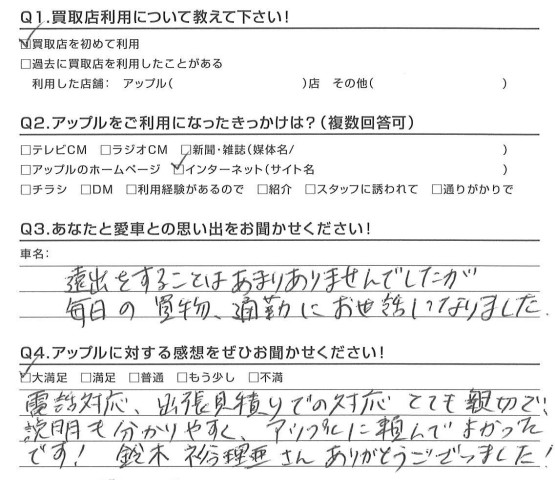 Q1.買取店利用について教えて下さい!
☑買取店を初めて利用
□過去に買取店を利用したことがある
利用した店舗: アップル( )店 その他( )
Q2.アップルをご利用になったきっかけは?(複数回答可)
□テレビCM □ラジオCM □新聞・雑誌(媒体名/ )
□アップルのホームページ ☑インターネット(サイト名 )
□チラシ □DM □利用経験があるので □紹介 □スタッフに誘われて □通りがかりで
Q3.あなたと愛車との思い出をお聞かせください!
車名:
遠出をすることはあまりありませんでしたが
毎日の買物、通勤にお世話になりました.
Q4.アップルに対する感想をぜひお聞かせください!
☑大満足 □満足 □普通 □もう少し □不満
電話対応、出張見積りでの対応とても親切で!
説明も分かりやすく、アップルに頼んでよかった
です! 鈴木 理亜さんありがとうございました!